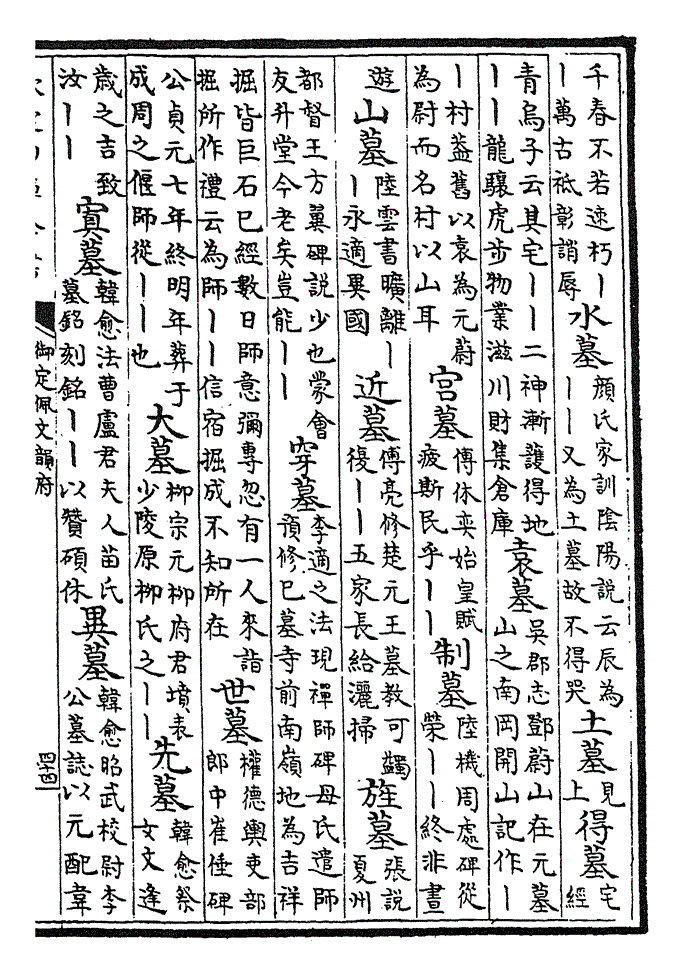 千春不若速朽丨丨萬古祇彰誚辱水墓顏氏家訓陰陽說云辰為丨丨又為土墓故不得哭土墓見上得墓宅經
青烏子云其宅丨丨二神漸護得地丨丨龍驤虎步物業滋川財集倉庫袁墓吳郡志鄧蔚山在元墓山之南岡開山記作丨
丨村葢舊以袁為元蔚為尉而名村以山耳宫墓傅休奕始皇賦疲斯民乎丨丨制墓陸機周處碑從榮丨丨終非晝
遊山墓陸雲書曠離丨丨永適異國近墓傅亮修楚元王墓教可蠲復丨丨五家長給灑掃旌墓張說夏州
都督王方翼碑說少也蒙會友升堂今老矣豈能丨丨穿墓李適之法現禪師碑母氏遣師預修已墓寺前南嶺地為吉祥
掘皆巨石已經數日師意彌專忽有一人來詣掘所作禮云為師丨丨信宿掘成不知所在世墓權德輿吏部郎中崔倕碑
公貞元七年終明年葬于成周之偃師從丨丨也大墓柳宗元柳府君墳表少陵原柳氏之丨丨先墓韓愈祭女文逢
歲之吉致汝丨丨寘墓韓愈法曹盧君夫人苗氏墓銘刻銘丨丨以贊碩休異墓韓愈昭武校尉李公墓誌以元配韋
御定佩文韻府
四十四